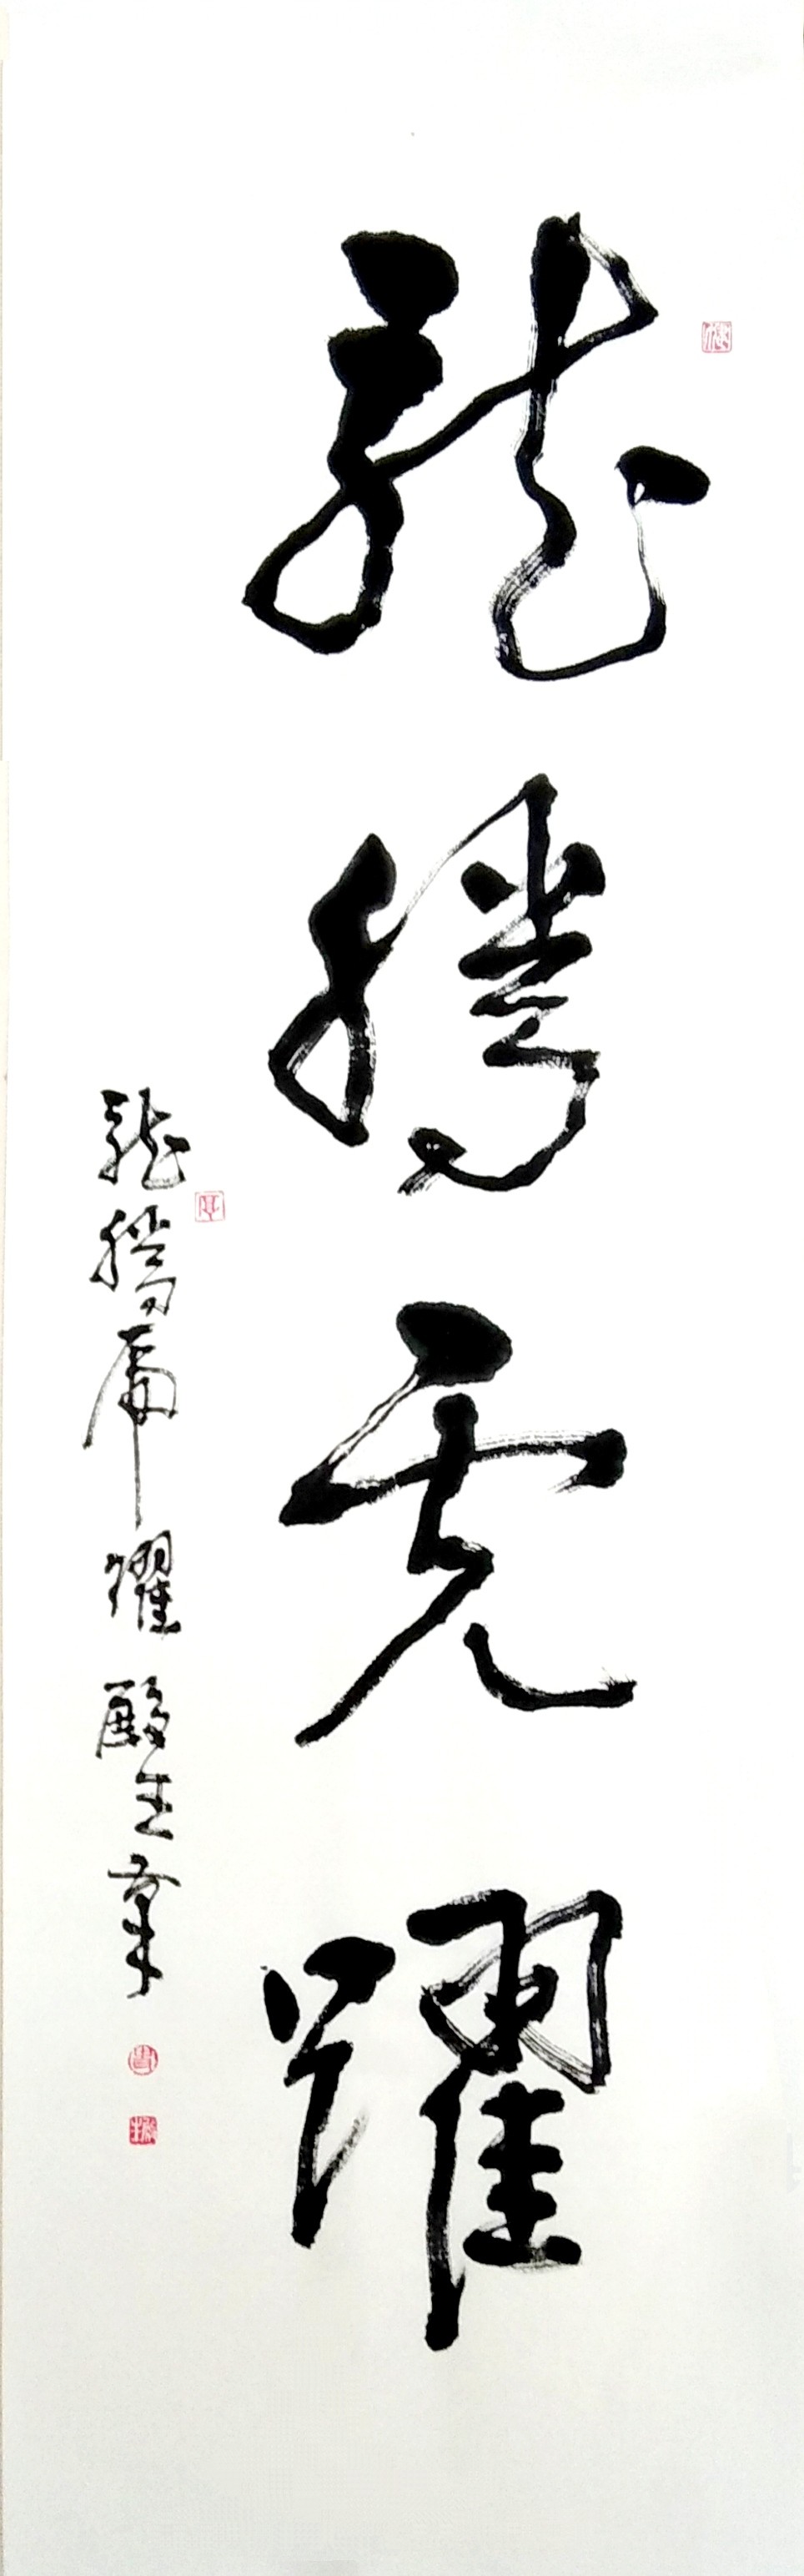 龍騰虎躍
龍騰虎躍 殿玉筆